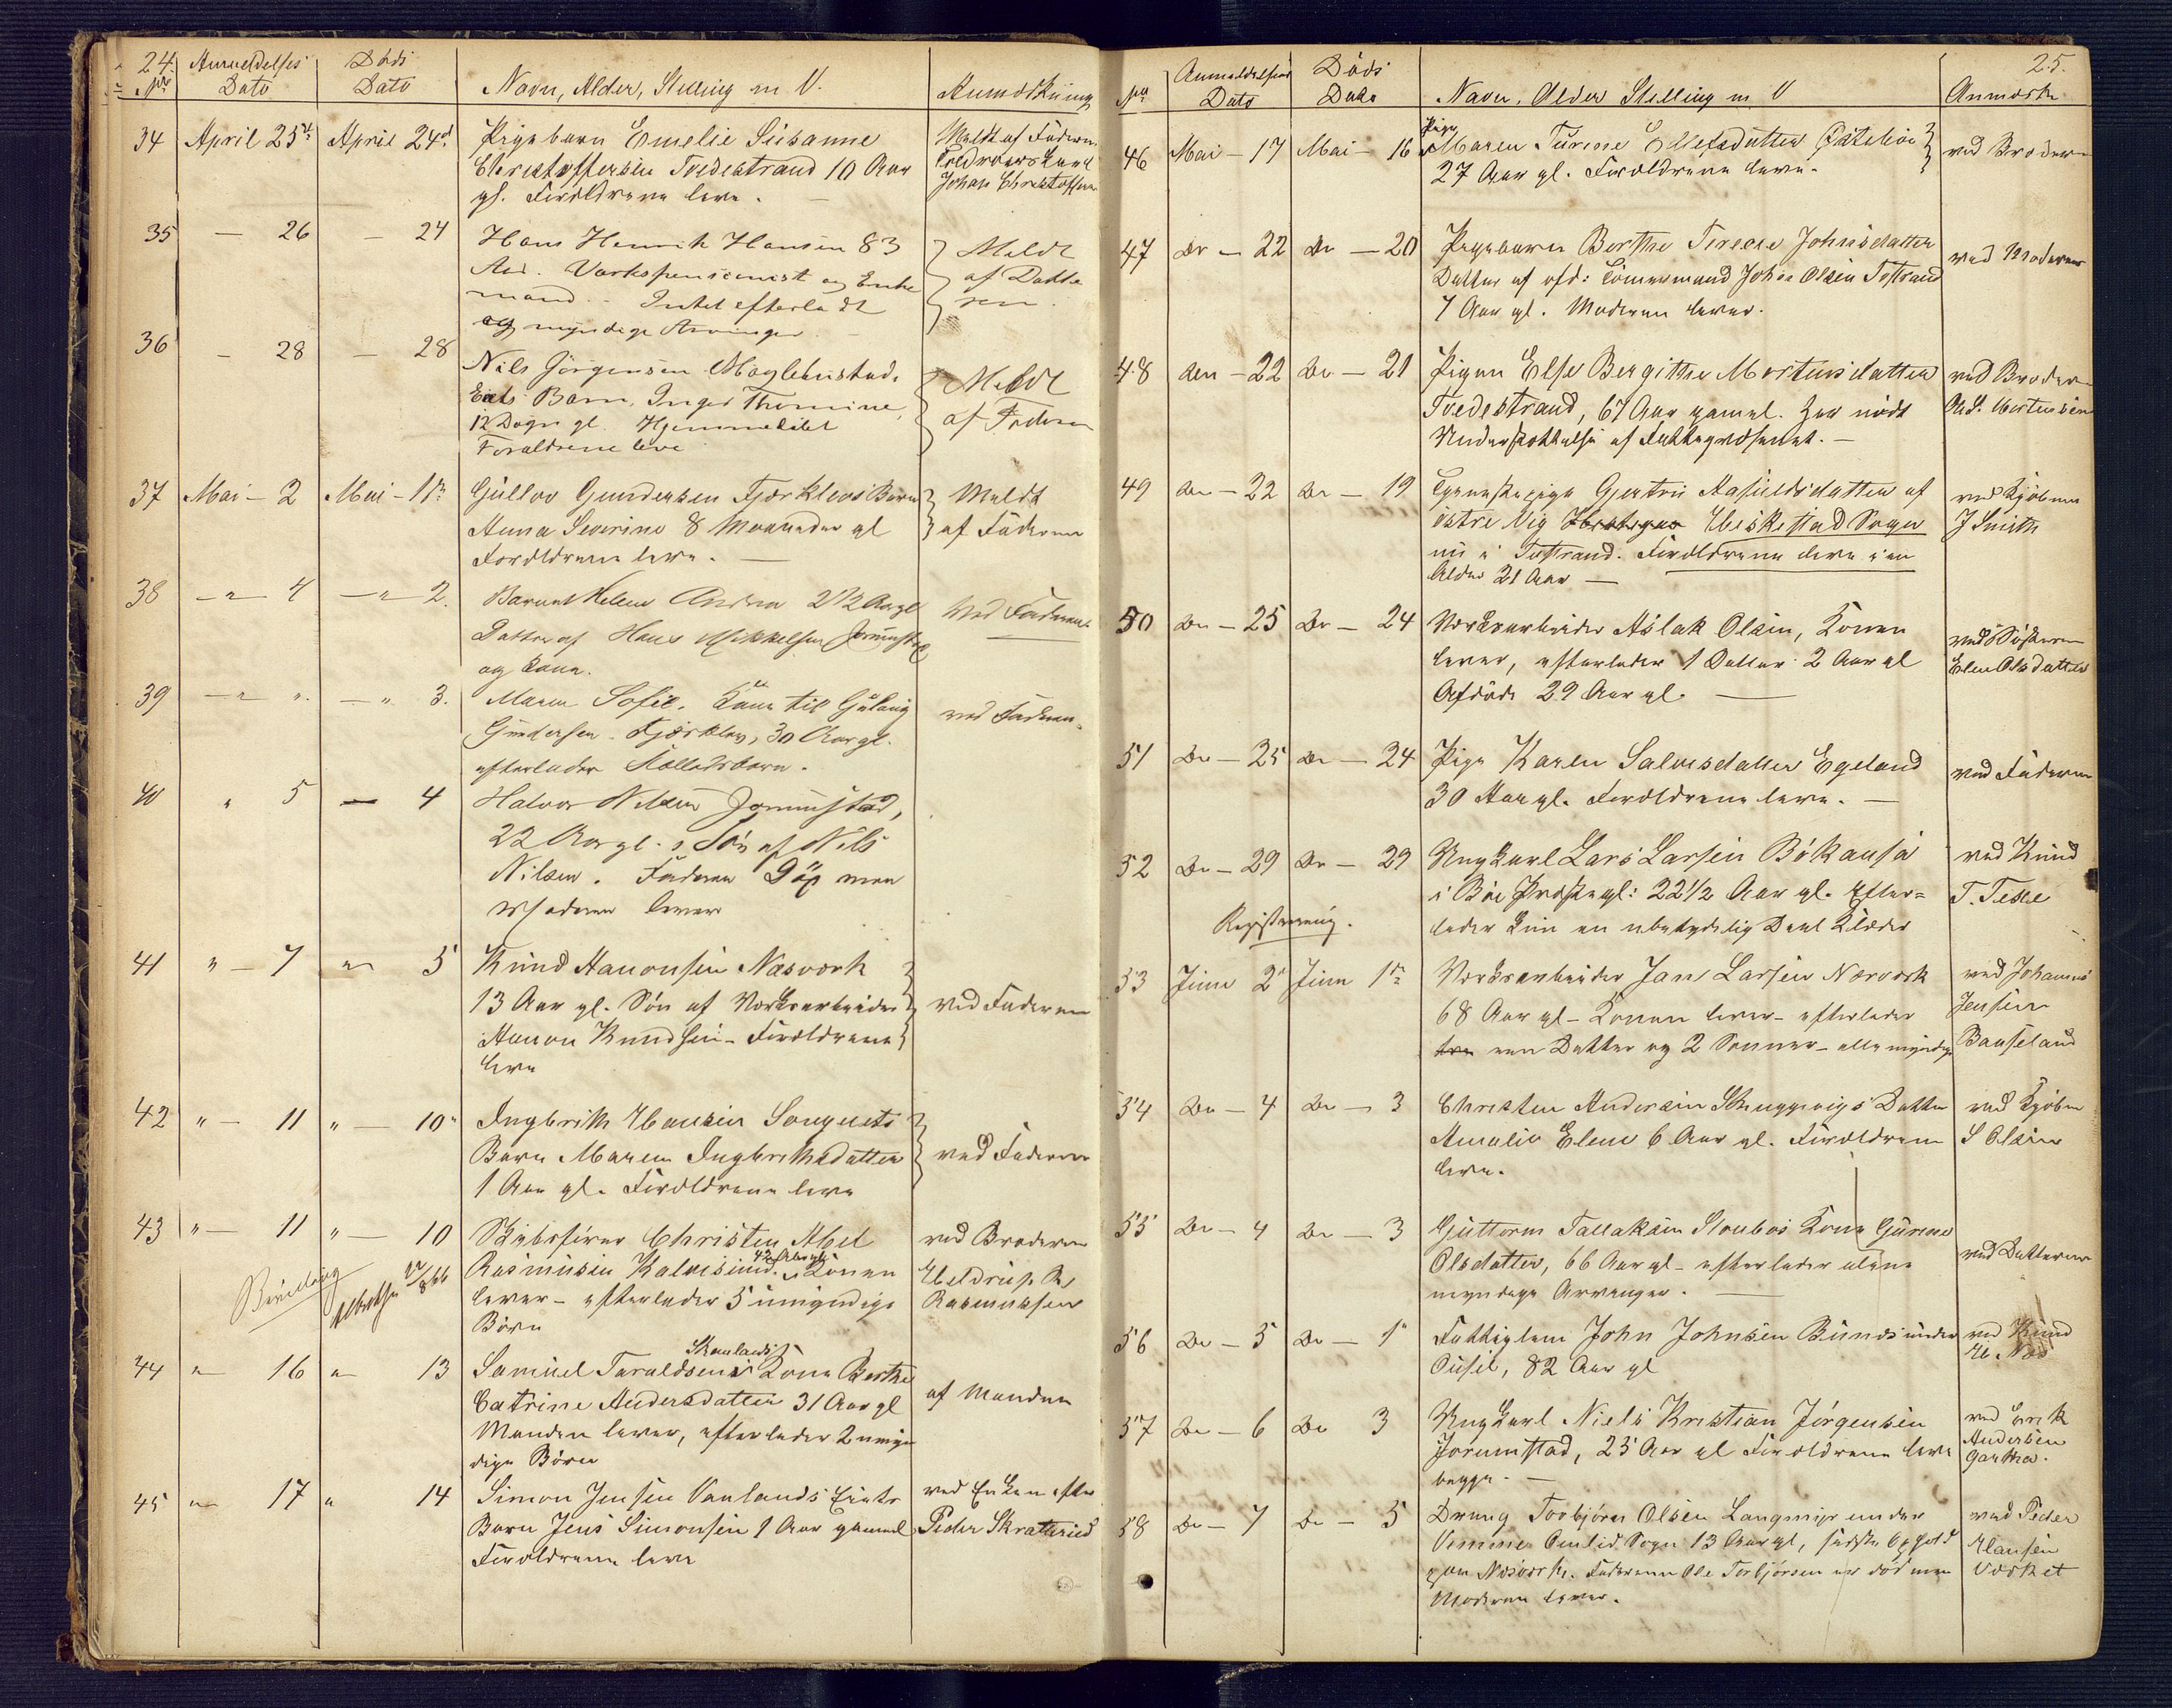 24.
No
Anmeldelses
Dato
Döds
Dato
Navn, Alder, Stilling m V.
Anmærkning
34 April 25de April 24d. Pigebarn Emelie Susanne
Christoffersen Tvedestrand 10 Aar
gl. Forældrene leve. —
Meldt af Faderen
Johan Christoffersen
35 — 26 — 24 Hans Henrik Hansen 83
Aar. Værkspensionist og Enke
mand. — Intet efterladt
og myndige Arvinger.
Meldt
af Datte
ren.
36 — 28 — 28
Nils Jörgensen Möglehustads
Barn, Inger Thomine,
12 Dage gl. Hjemmedöbt
Forældrene leve
Meldt
af Faderen
37 Mai - 2 Mai - 1ste Gullov Gundersen Fjærklevs Barn
Anna Severine 8 Maaneder gl
Forældrene leve. —
Meldt
af Faderen
38 — " — 4 — " — 2. Barnet Helene Andrea 2 1/2 Aar gl
Datter af Hans Mikkelsen Jorunstad
og Kone.
Ved Faderen
39 — " " — " 3. Maren Sofie, Kone til Gulouv
Gundersen Fjærklev, 30 Aar gl.
efterlader Kollebarn.
ved Faderen
40 " 5 — 4 Halvor Nilsen Jorunstad,
22 Aar gl., Sön af Nils
Nilsen. Faderen Död men
Moderen lever
41 " — 7 " 5 Knud Aanonsen Næsværk
13 Aar gl. Sön af Værksarbeider
Aanon Knudsen - Forældrene
leve
Ved Faderen
42 " — 11 " — 10 Ingbrith Hansen Songests
Barn Maren Ingbrithsdatter
1 Aar gl. Forældrene leve
ved Faderen
43 " — 11 " — 10 Skibsförer Christen Abel
Rasmusen Kalvesund. 42 Aar gl. Konen
lever - efterlader 5 umyndige
Börn
ved Broderen
Rasmussen
44 " 16 " 13 Samuel Taraldsens Skaulands Kone Berthe
Catrine Andersdatter 31 Aar gl
Manden lever, efterlader 2 umyn
dige Börn
af Manden
45 " 17 " 14 Simon Jensen Vanlands
Barn Jens Simonsen 1 Aar gammel
Forældrene leve
ved Enken efter
Peder Skratteried
25.
No
Anmeldelses
Dato
Döds
Dato
Navn, Alder Stilling m V
Anmærkn
46 Mai — 17 Mai — 16 Pige Maren Turine Ellefsdatter Östebøe
27 Aar gl. Forældrene leve.
ved Broderen
47 Do — 22 Do — 20 Pigebarn Berthe Terese Johnsdatter
Datter af afd: Tömmermand John Olsen Tvstrand
7 Aar gl. Moderen lever.
ved Moderen
48 den — 22 Do — 21 Pigen Else Bergitte Mortensdatter
Tvedestrand, 67 Aar gammel. Har nydt
Understöttelse af Fattigvæsenet. —
ved Broderen
Ol. S. Mortensen
49 Do — 22 Do — 19 Tjenestepige Gjertru Aasuldsdatter af
östre Vig Heiskestad Sogn
nu i Tvstrand. Forældrene leve i en
Alder 21 Aar —
ved Kjöbmn
J Smith
50 Do — 25 Do — 24 Værksarbeider Aslak Olsen, Konen
lever, efterlader 1 Datter 2 Aar gl
Afdöde 29 Aar gl. —
ved Söstren
Elen Olsdatter
51 Do — 25 Do — 24 Pige Karen Salvesdatter Egeland
30 Aar gl. Forældrene leve. —
ved Faderen
52 Do — 29 Do — 29 Ungkarl Lars Larsen Bökaasa
i Böe Præstegl: 22 1/2 Aar gl. Efter=
lader kun en ubetydelig Deel Klæder
ved Knud
T. Teslie
Registrering.
53 Juni 2de Juni 1ste Værksarbeider Jans Larsen Næsværk
68 Aar gl - Konen lever - efterlader
een Datter og 2 Sønner - alle myndige
ved Johannes
Jensen
Bauseland
54 Do — 4 Do — 3 Christen Andersen Skuggevigs Datter
Amalie Elene 6 Aar gl. Forældrene
leve.
ved Kjöbm
S Olsen
55 Do — 4 Do — 3 Guttorm Tallaksen Stoubös Kone Gurine
Olsdatter, 66 Aar gl - efterlader alene
myndige Arvinger. —
ved Datteren
56 Do — 5 Do — 1ste Fattiglem John Johnsen Bunds under
Ousel, 82 Aar gl
ved Knud
H. Næs
57 Do — 6 Do 3 Ungkarl Niels Kristian Jörgensen
Jorumstad, 25 Aar gl Forældrene leve
begge. —
ved Erik
Andersen
Gartha.
58 Do — 7 Do — 5 Dreng Torbjörn Olsen Langmyr under
Vimme Omlid Sogn 13 Aar gl, sidste Ophold
paa Næsværk. Faderen Ole Torbjörsen er död men
Moderen lever.
ved Peder
Hansen
Værket